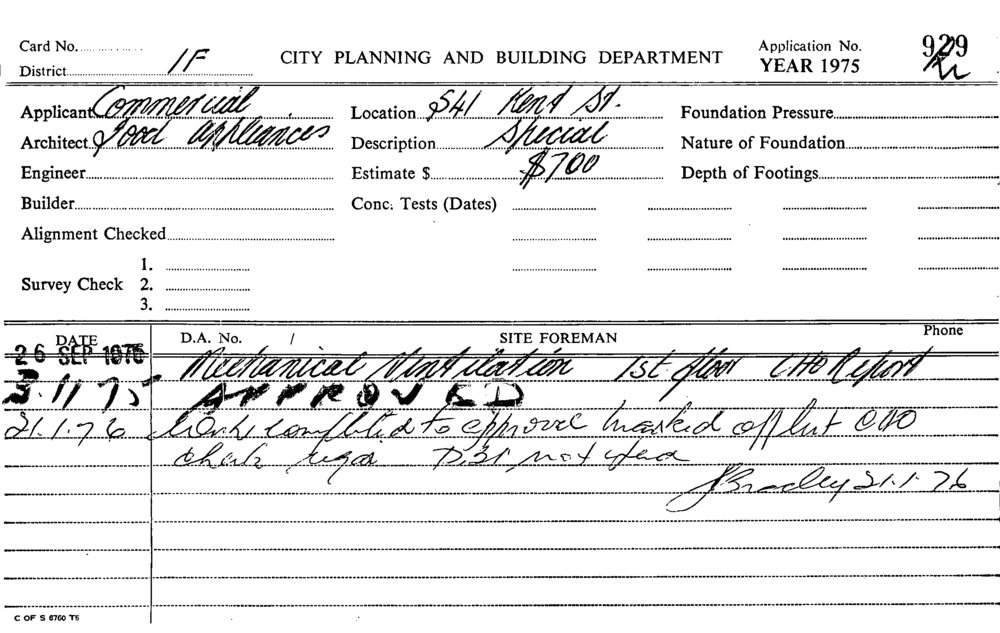 Card No.
District 1F
CITY PLANNING AND BUILDING DEPARTMENT
Application No. 929
YEAR 1975
Applicant Commercial
Architect Food Appliances
Engineer
Builder
Alignment Checked
Survey Check 1.
2.
3.
Location 541 Kent St.
Description Special
Estimate $ $700
Conc. Tests (Dates)
Foundation Pressure
Nature of Foundation
Depth of Footings
DATE D.A. No. / SITE FOREMAN Phone
26 SEP 1975 Mechanical Ventilation 1st floor CHO Report
3.11.75 APPROVED
21.1.76 Work completed to approval marked off but CHO
check
J Bradley 21.1.76
C OF S 6760 T6